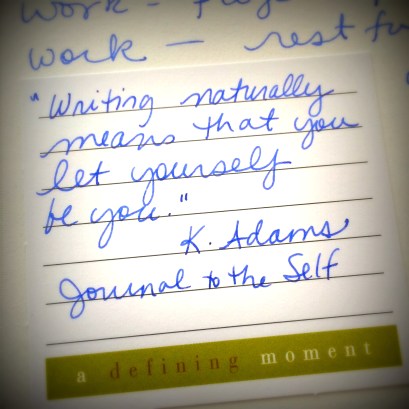 work -
work - rest
"Writing naturally
means that you
let yourself
be you."
K. Adams
Journal to the Self
a defining moment